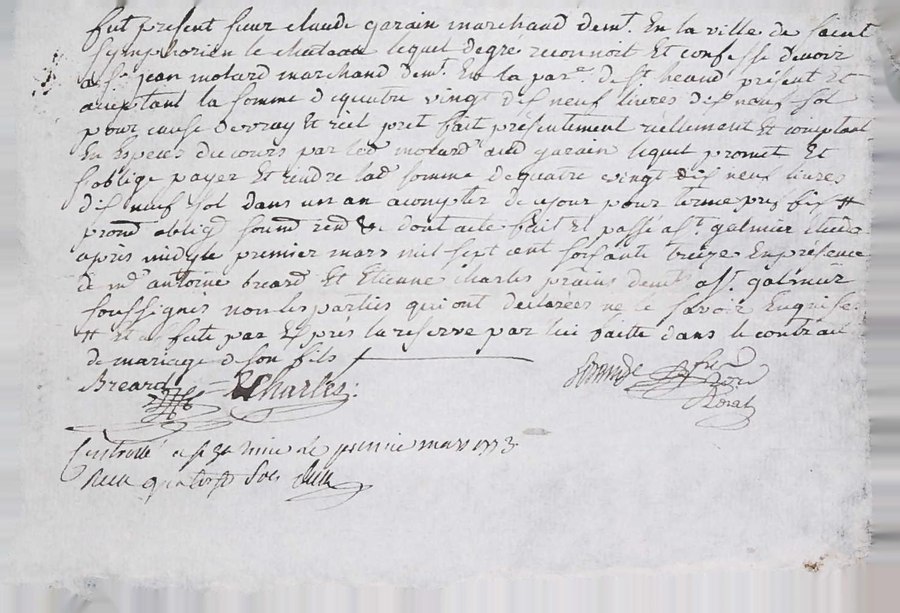 fut present sieur claude garain marchand demt. En la ville de saint
symphorien le chateau lequel degre reconnoit Et confesse devoir
a sr. jean molard marchand demt. En la pare. de st heand présent Et
acceptant la somme de quatre vingt dis neuf livres dis neuf sol
pour cause de vray Et réel prêt fait présentement réellement Et comptant
En Especes du cours par led. molard aud garain lequel promet Et
s'oblige payer Et rendre lad somme de quatre vingt dis neuf livres
dis neuf sol dans un an a compter de ce jour pour terme prefix #
promt obligt soumt rent & dont acte fait Et passé a st. galmier Etude
après midy le premier mars mil sept cent soisante treize En présence
de me antoine breard Et Etienne charles praticiens demt a st. galmier
soussignés non les parties qui ont déclarées ne le savoir Enquise
# Et a faute par Exprès la reserve par lui faitte dans le contrat
de mariage de son fils
Breard Charles
Controllé a st le premier mars 1773
Reçu quatorze sols